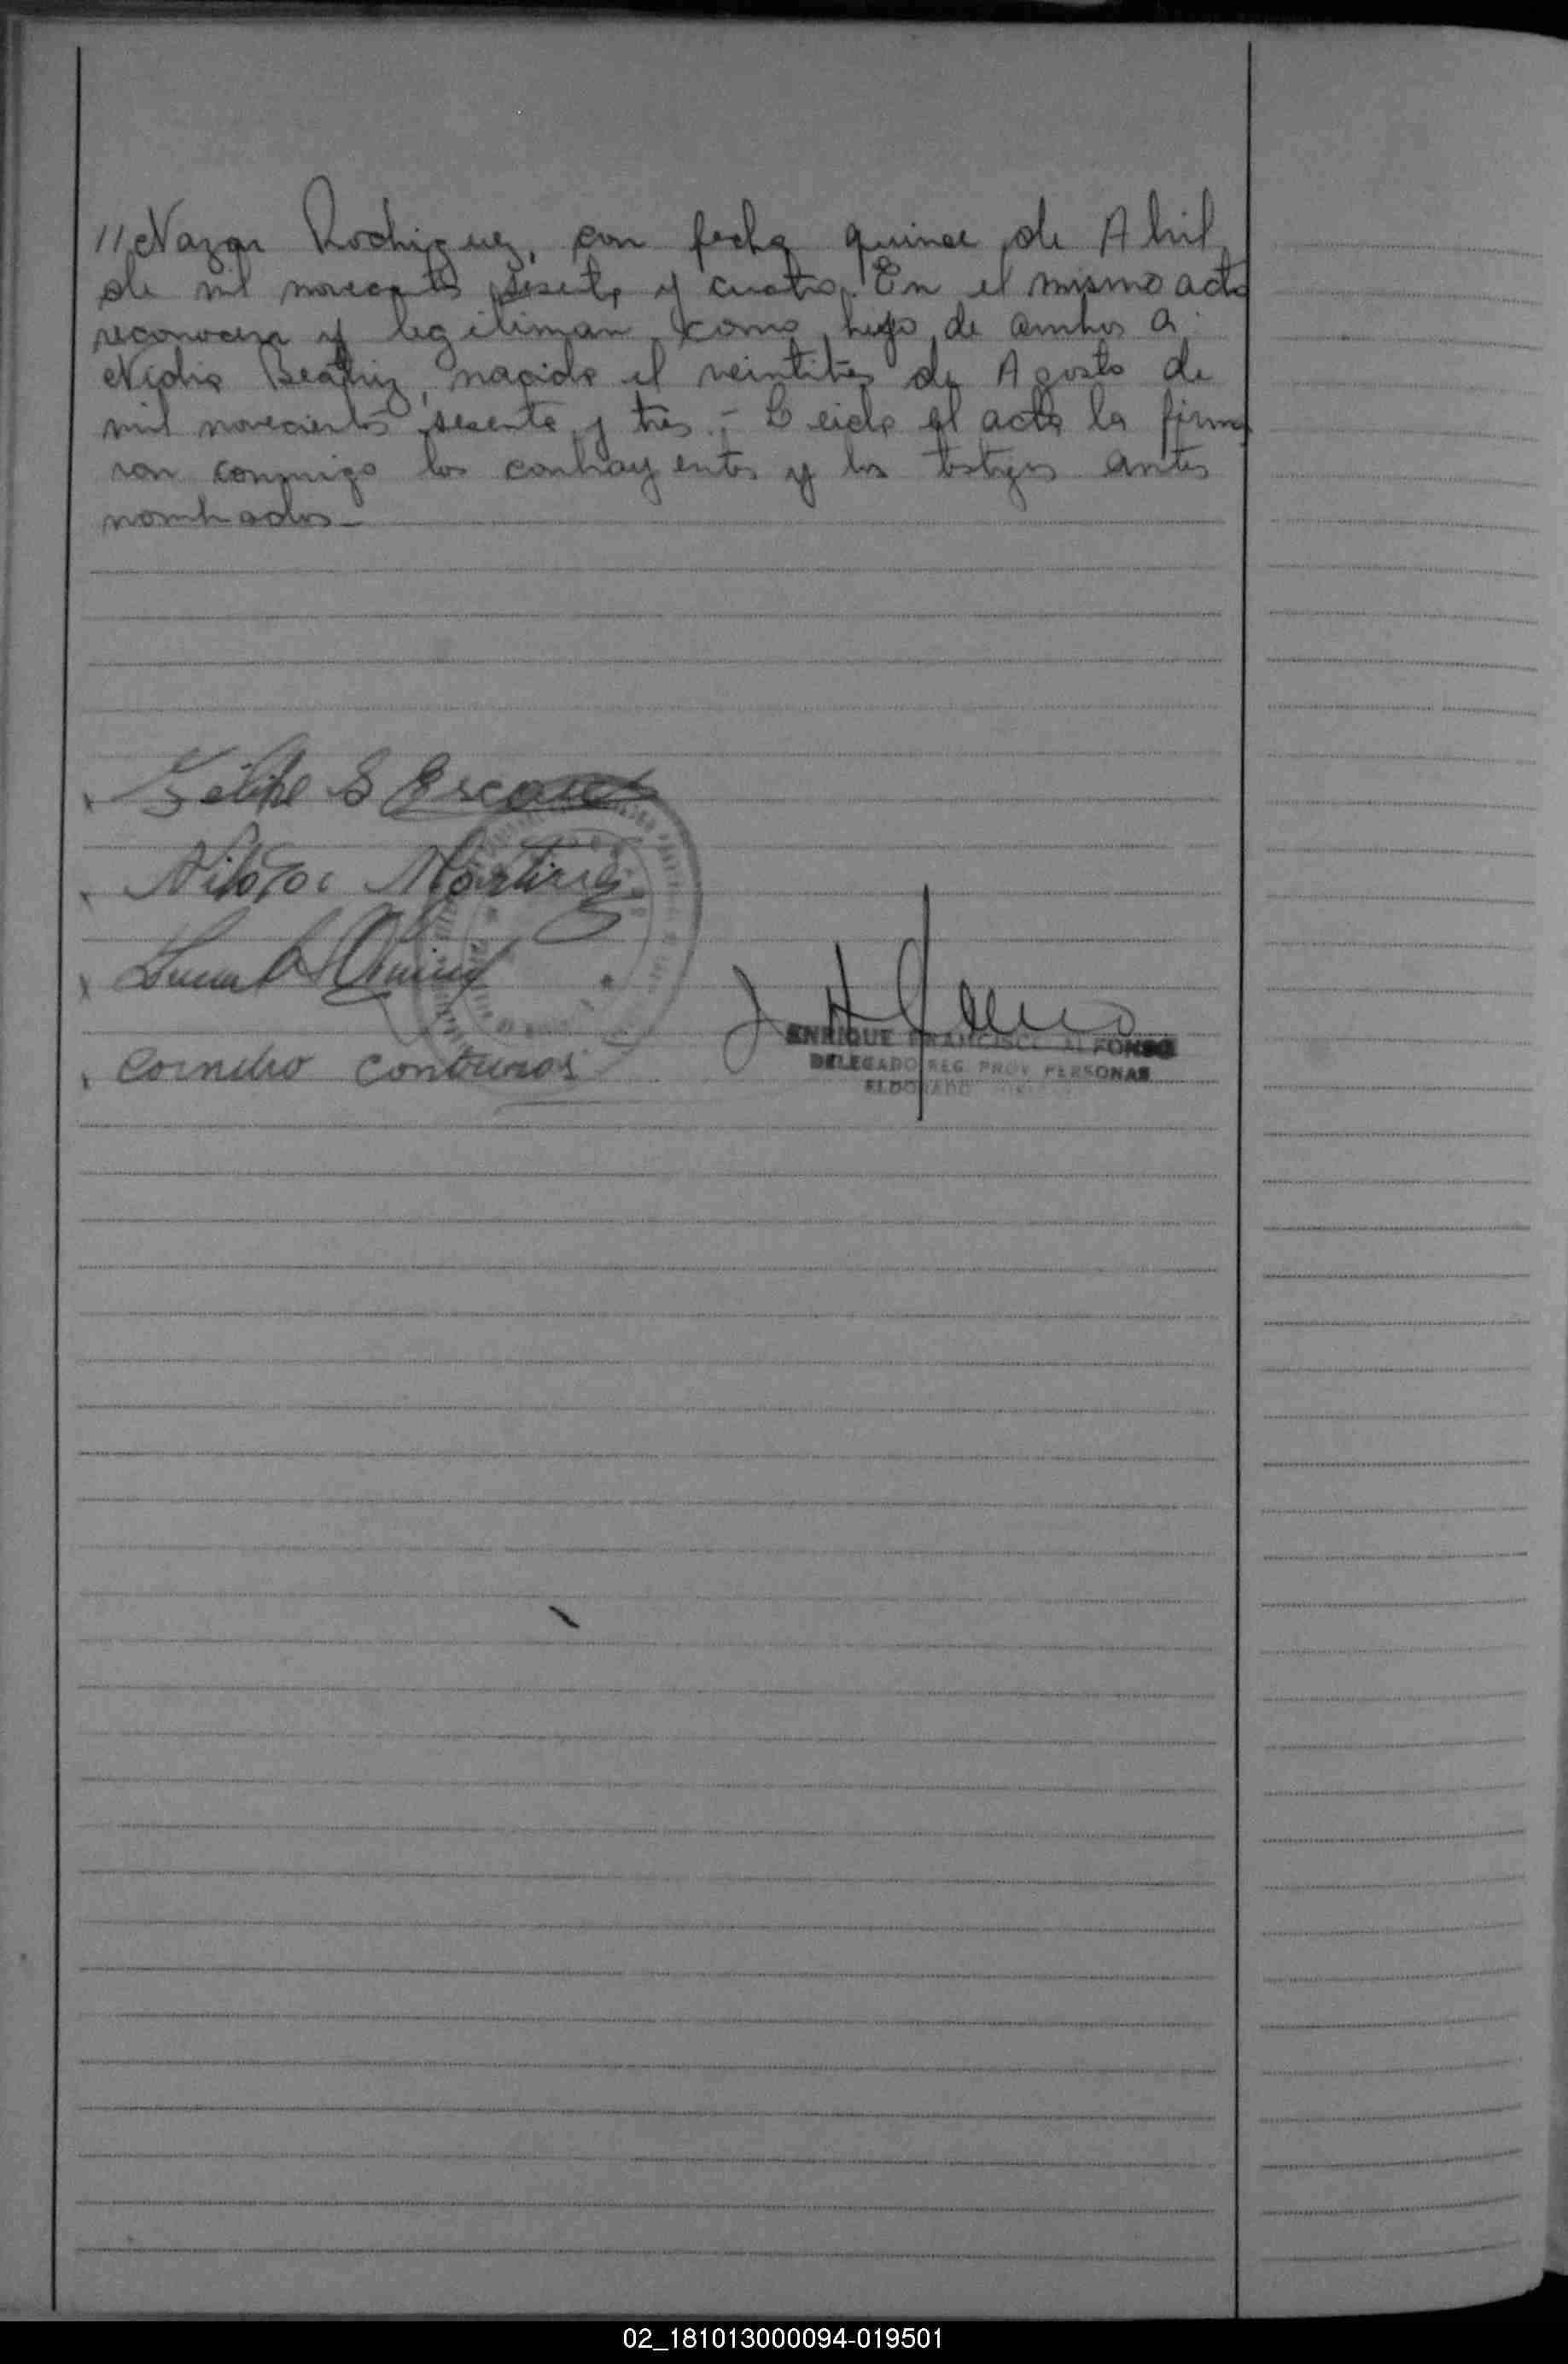 //Nazar Rodriguez, con fecha quince de Abril
de mil novecientos sesenta y cuatro. En el mismo acto
reconocen y legitiman como hijo de ambos a:
Nidia Beatriz, nacida el veintitrés de Agosto de
mil novecientos sesenta y tres.- Leida el acta la firma
ron conmigo los contrayentes y los testigos antes
nombrados-
Felipe S
Martinez
ENRIQUE FRANCISCO ALFONSO
DELEGADO REG. PROV. PERSONAS
ELDORADO
02_181013000094-019501